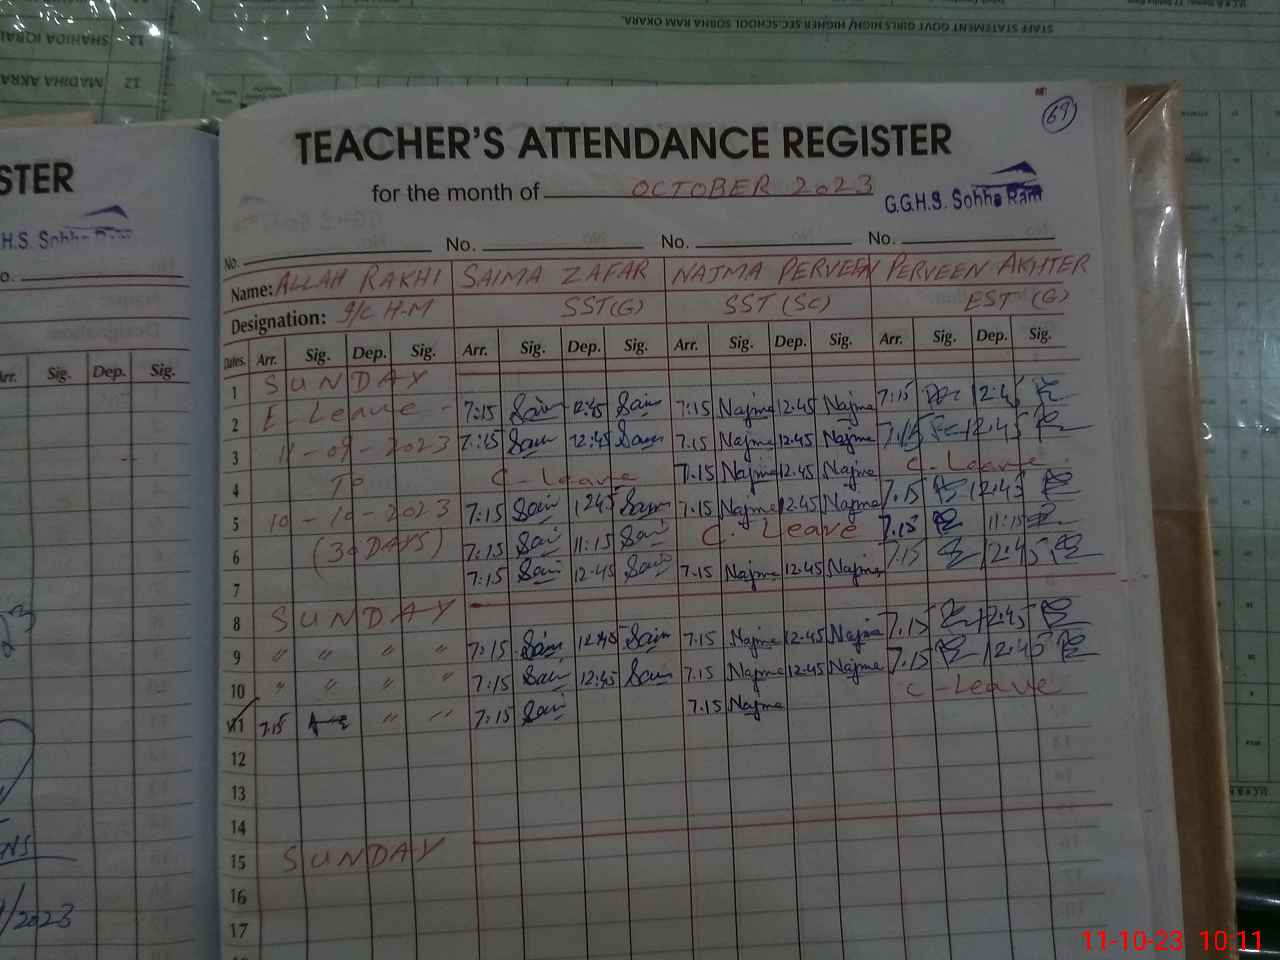 STAFF STATEMENT GOVT GIRLS HIGH/ HIGHER SEC:SCHOOL SOBHA RAM OKARA.
12 SHAHIDA IQBAL
12 MADIHA AKRA
69
STER
TEACHER'S ATTENDANCE REGISTER
for the month of OCTOBER 2023
G.G.H.S. Sobha Ram
H.S. Sobha Ram
No. No. No. No.
Name: ALLAH RAKHI SAIMA ZAFAR NAJMA PERVEEN PERVEEN AKHTER
Designation: I/C H-M SST(G) SST(SC) EST(G)
Dates. Arr. Sig. Dep. Sig. Arr. Sig. Dep. Sig. Arr. Sig. Dep. Sig. Arr. Sig. Dep. Sig.
Arr. Sig. Dep. Sig.
1 SUNDAY
2 E-Leave - 7:15 Saim 12:45 Saim 7:15 Najma 12.45 Najma 7:15 12:45
3 11-09-2023 7:15 Saim 12:45 Saim 7.15 Najma 12.45 Najma 7.15 12:45
4 To C-Leave 7.15 Najma 12.45 Najma C-Leave
5 10-10-2023 7:15 Saim 12:45 Saim 7.15 Najma 12.45 Najma 7.15 12:45
6 (30 DAYS) 7:15 Saim 11:15 Saim C. Leave 7.15 11:15
7 7:15 Saim 12:45 Saim 7.15 Najma 12.45 Najma 7.15 12:45
8 SUNDAY
9 " " " " 7:15 Saim 12:45 Saim 7.15 Najma 12.45 Najma 7.15 12:45
10 " " " " 7:15 Saim 12:45 Saim 7.15 Najma 12.45 Najma 7.15 12:45
11 7.15 " " 7:15 Saim 7.15 Najma C-Leave
12
13
14
15 SUNDAY
16
17
/2023
11-10-23 10:11